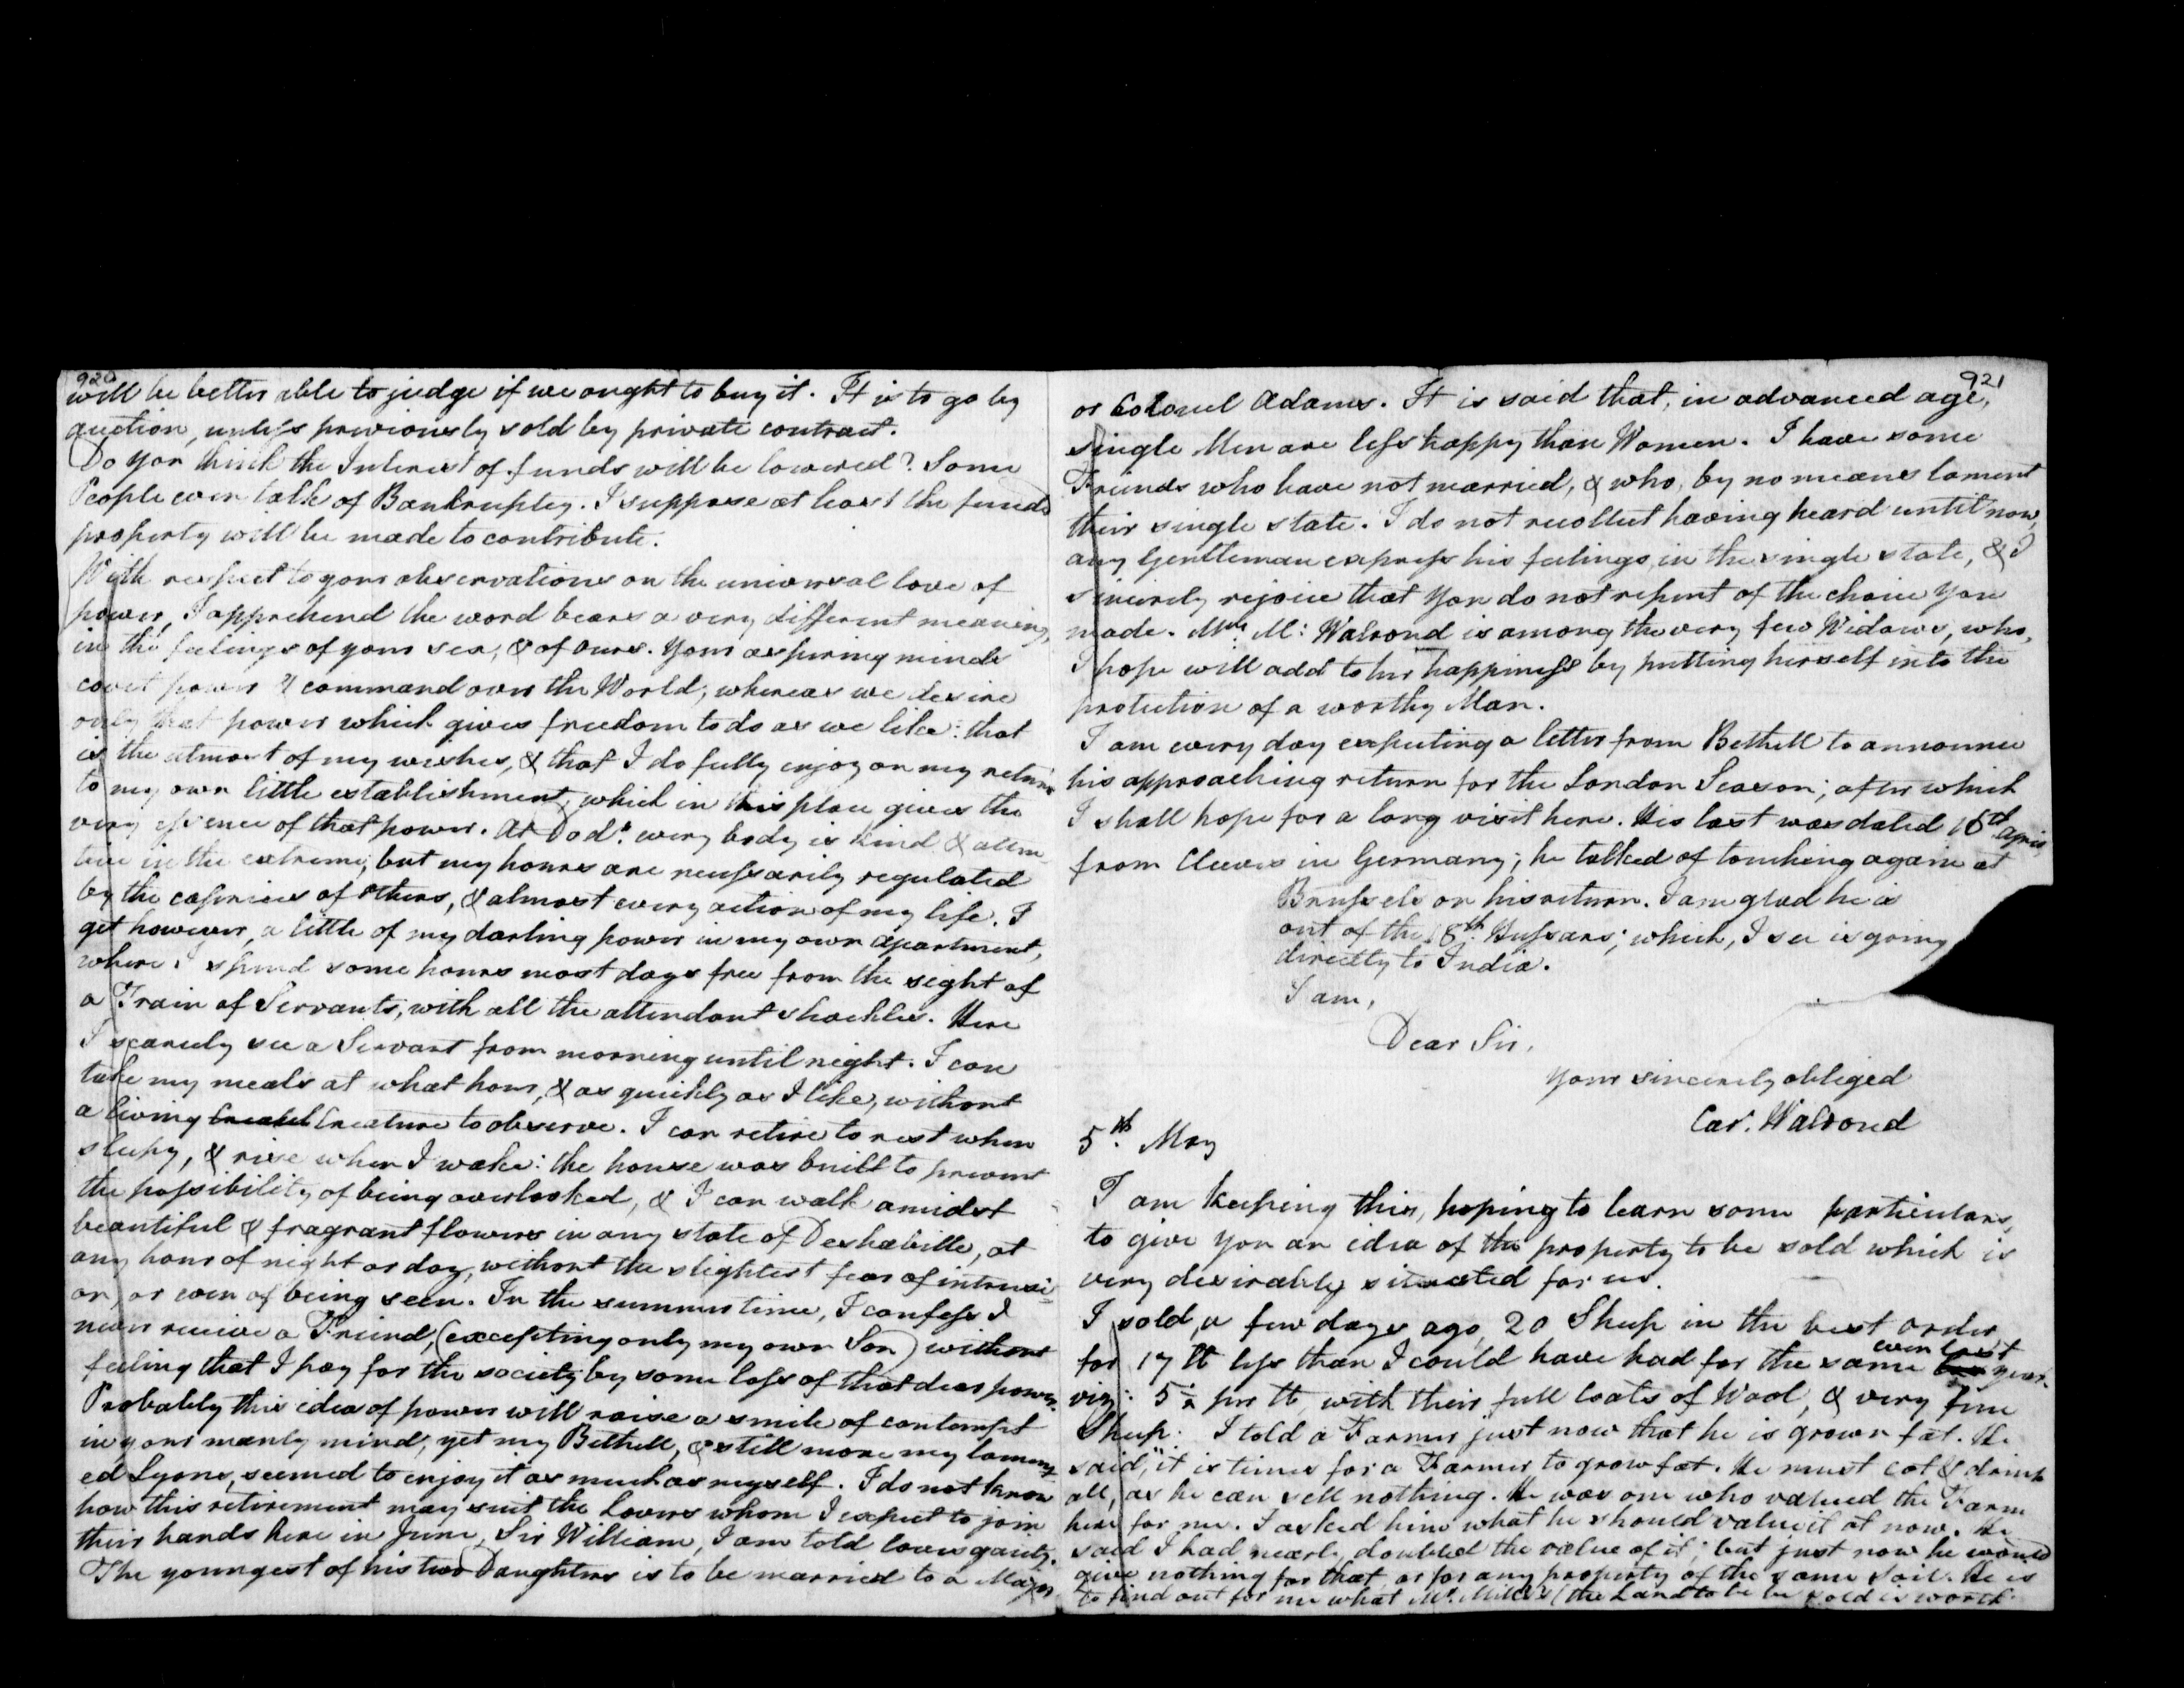 920
will be better able to judge if we ought to buy it. It is to go by
auction, unless previously sold by private contract.
Do you think the Interest of funds will be lowered? Some
People even talk of Bankruptcy. I suppose at least the funds
property will be made to contribute.
With respect to your observations on the universal love of
power, I apprehend the word bears a very different meaning,
in the feelings of your sex, & of ours. Your aspiring minds
covet power & command over the World; whereas we desire
only that power which gives freedom to do as we like: that
is the utmost of my wishes, & that I do fully enjoy on my return
to my own little establishment, which in this place gives the
very essence of that power. At Dod.s every body is kind & atten
tive in the extreme, but my hours are necessarily regulated
by the caprices of others, & almost every action of my life. I
get however, a little of my darling power in my own apartment,
where I spend some hours most days free from the sight of
a Train of Servants, with all the attendant shackles. Here
I scarcely see a Servant from morning until night. I can
take my meals at what hour, & as quickly as I like, without
a living Creature to observe. I can retire to rest when
sleepy, & rise when I wake: the house was built to prevent
the possibility of being overlooked, & I can walk amidst
beautiful & fragrant flowers in any state of Deshabille, at
any hour of night or day, without the slightest fear of intrusi=
on, or even of being seen. In the summer time, I confess I
never receive a Friend, (excepting only my own Son) without
feeling that I pay for the society by some loss of that dear power.
Probably this idea of power will raise a smile of contempt
in your manly mind, yet my Bethell, & still more my lament-
ed Lyons, seemed to enjoy it as much as myself. I do not know
how this retirement may suit the Lovers whom I expect to join
their hands here in June, Sir William, I am told loves gaiety.
The youngest of his two Daughters is to be married to a Major
921
or Colonel Adams. It is said that, in advanced age,
single Men are less happy than Women. I have some
Friends who have not married, & who, by no means lament
their single state. I do not recollect having heard until now,
any Gentleman express his feelings in the single state, & I
sincerely rejoice that you do not repent of the choice you
made. Mrs. M: Walrond is among the very few Widows, who,
I hope will add to her happiness by putting herself into the
protection of a worthy Man.
I am every day expecting a letter from Bethell to announce
his approaching return for the London Season; after which
I shall hope for a long visit here. His last was dated 16th April
from Cleves in Germany; he talked of touching again at
Brussels on his return. I am glad he is
out of the 18th. Hussars; which, I see is going
directly to India.
I am,
Dear Sir,
Your sincerely obliged
Car. Walrond
5th. May
I am keeping this, hoping to learn some particulars,
to give you an idea of the property to be sold which is
very desirably situated for us.
I sold, a few days ago, 20 Sheep in the best order
for 17 lt less than I could have had for the same even last year
viz: 5 per lt, with their full Coats of Wool, & very fine
Sheep. I told a Farmer just now that he is grown fat. He
said, "it is time for a Farmer to grow fat. He must eat & drink
all, as he can sell nothing. He was one who valued the Farm
here for me. I asked him what he should value it at now. He
said I had nearly doubled the value of it; but just now he would
give nothing for that, or for any property of the same sort. He is
to find out for me what Mr. (the Land to be sold is worth